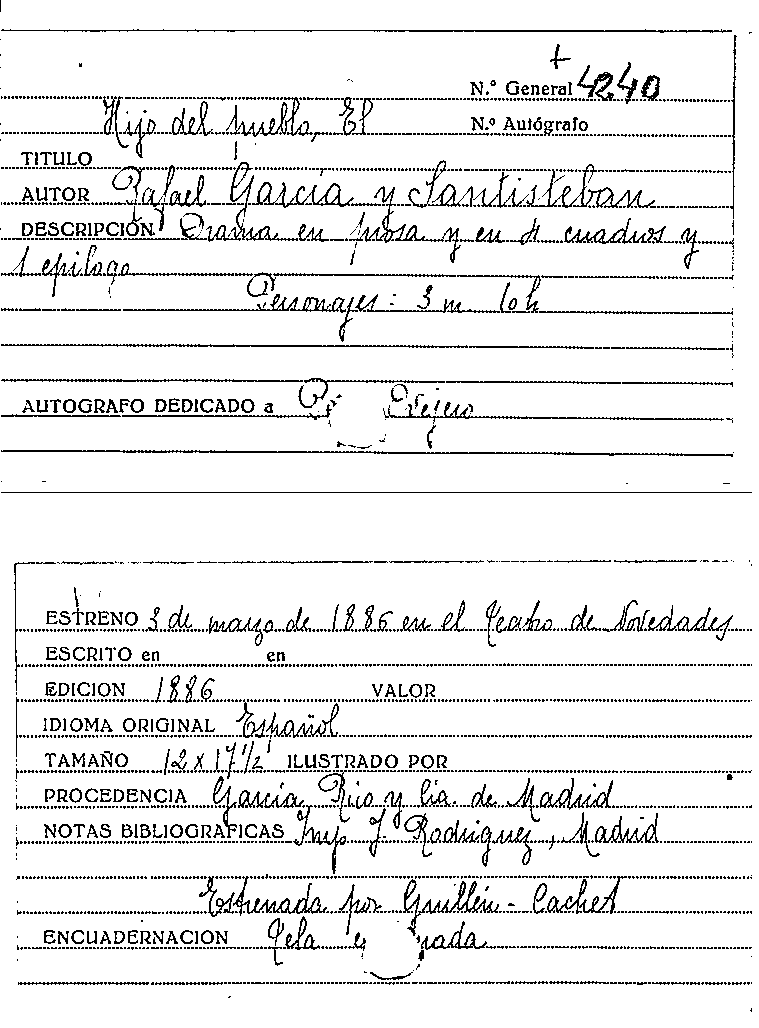 +
N.º General 4240
Hijo del pueblo, El
N.º Autógrafo
TITULO
AUTOR Rafael García y Santisteban
DESCRIPCIÓN Drama en prosa y en 4 cuadros y
1 epílogo
Personajes: 3 m. 10 h
AUTOGRAFO DEDICADO a Ovejero
ESTRENO 3 de marzo de 1886 en el Teatro de Novedades
ESCRITO en en
EDICION 1886 VALOR
IDIOMA ORIGINAL Español
TAMAÑO 12 x 17 1/2 ILUSTRADO POR
PROCEDENCIA García Rico y Cia. de Madrid
NOTAS BIBLIOGRAFICAS Imp. J. Rodriguez, Madrid
Estrenada por Guillén - Cachet
ENCUADERNACION Tela